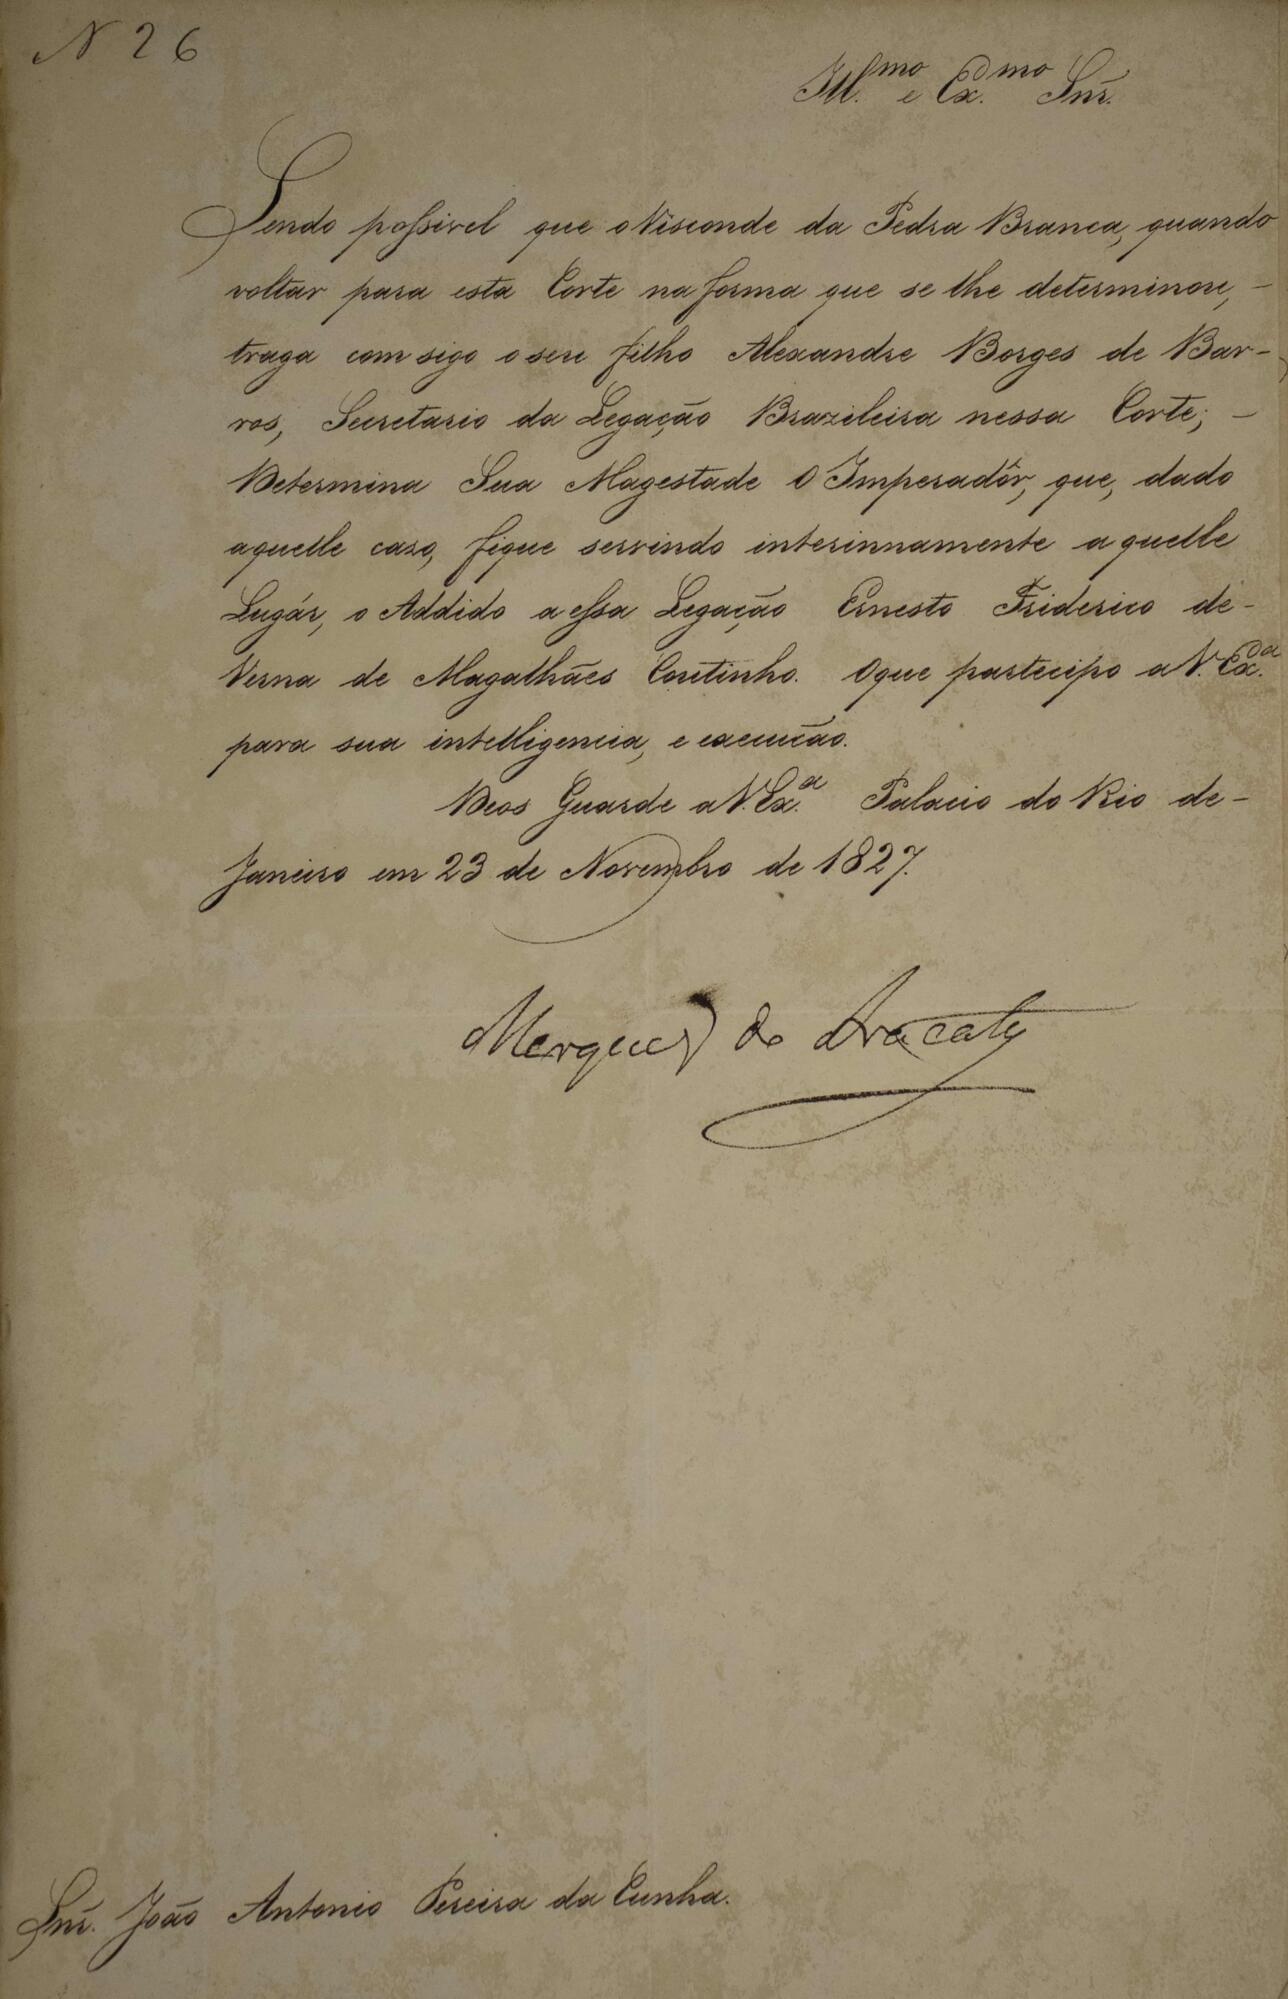 N 26
Ill.mo e Ex.mo Snr.
Sendo possivel que o Visconde da Pedra Branca, quando
voltar para esta Corte na forma que se lhe determinou, -
traga com sigo o seu filho Alexandre Borges de Bar-
ros, Secretario da Legação Brazileira nessa Corte; -
Determina Sua Magestade O Imperadôr, que, dado
aquelle cazo, fique servindo interinnamente aquelle
Lugár, o Addido a essa Legação Ernesto Friderico de -
Verna de Magalhães Coutinho. O que partecipo a V. Ex.a
para sua intelligencia, e execução.
Deos Guarde a V. Ex.a Palacio do Rio de -
Janeiro em 23 de Novembro de 1827.
Marquez de Aracaty
Snr. João Antonio Pereira da Cunha.